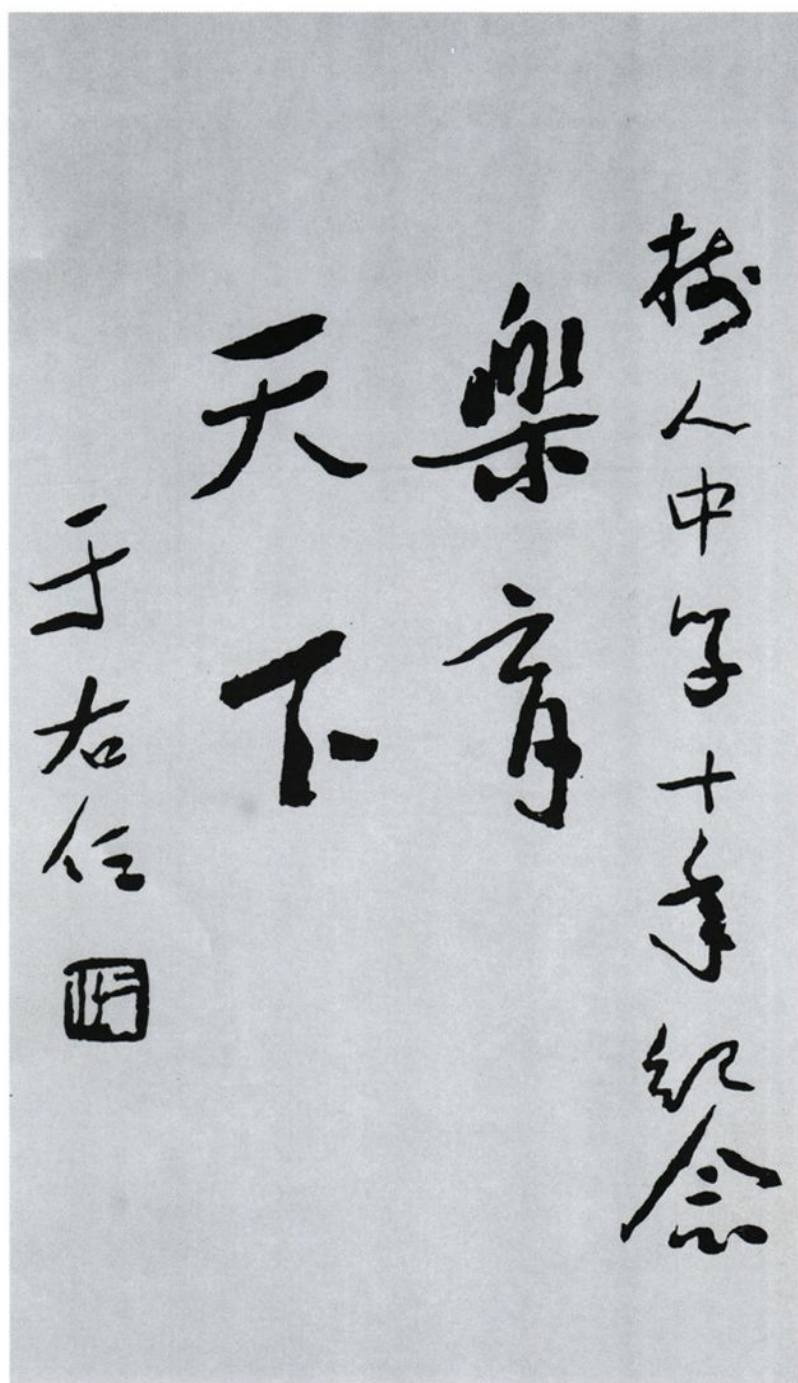 樹人中学十年紀念
樂育
天下
于右任